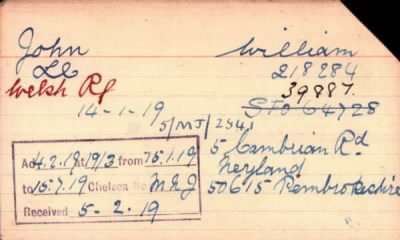 John William
Lc 218284
Welsh Rf 39887
14-1-19 STO 64728
5/MJ/284
5 Cambrian Rd
Neyland
50615 Pembrokeshire
Ad 4.2.19 at 19/3 from 15.1.19
to 15.7.19 Chelsea No M&J
Received 5-2.19